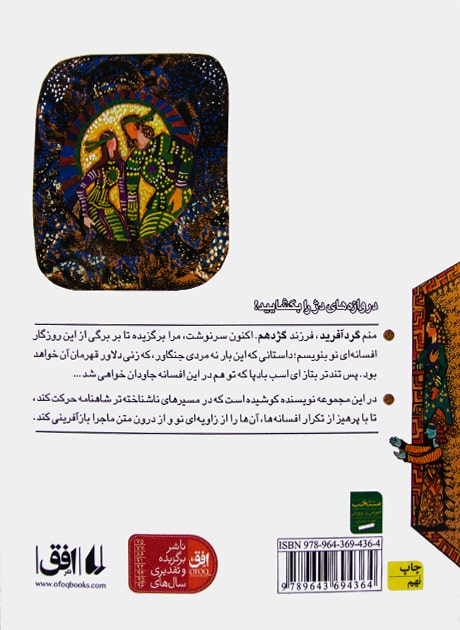 دروازه‌های دژ را بگشایید!
منم گردآفرید، فرزند گژدهم. اکنون سرنوشت، مرا برگزیده تا بر برگی از این روزگار
افسانه‌ای نو بنویسم؛ داستانی که این بار نه مردی جنگاور، که زنی دلاور قهرمان آن خواهد
بود. پس تندتر بتاز ای اسب بادپا که تو هم در این افسانه جاودان خواهی شد ...
در این مجموعه نویسنده کوشیده است که در مسیرهای ناشناخته‌تر شاهنامه حرکت کند،
تا با پرهیز از تکرار افسانه‌ها، آن‌ها را از زاویه‌ای نو و از درون متن ماجرا بازآفرینی کند.
منتخب
ISBN 978-964-369-436-4
9 789643 694364
چاپ
نهم
ناشر
برگزیده
و تقدیری
سال‌های
افق
OFOQ
نشر افق
www.ofoqbooks.com